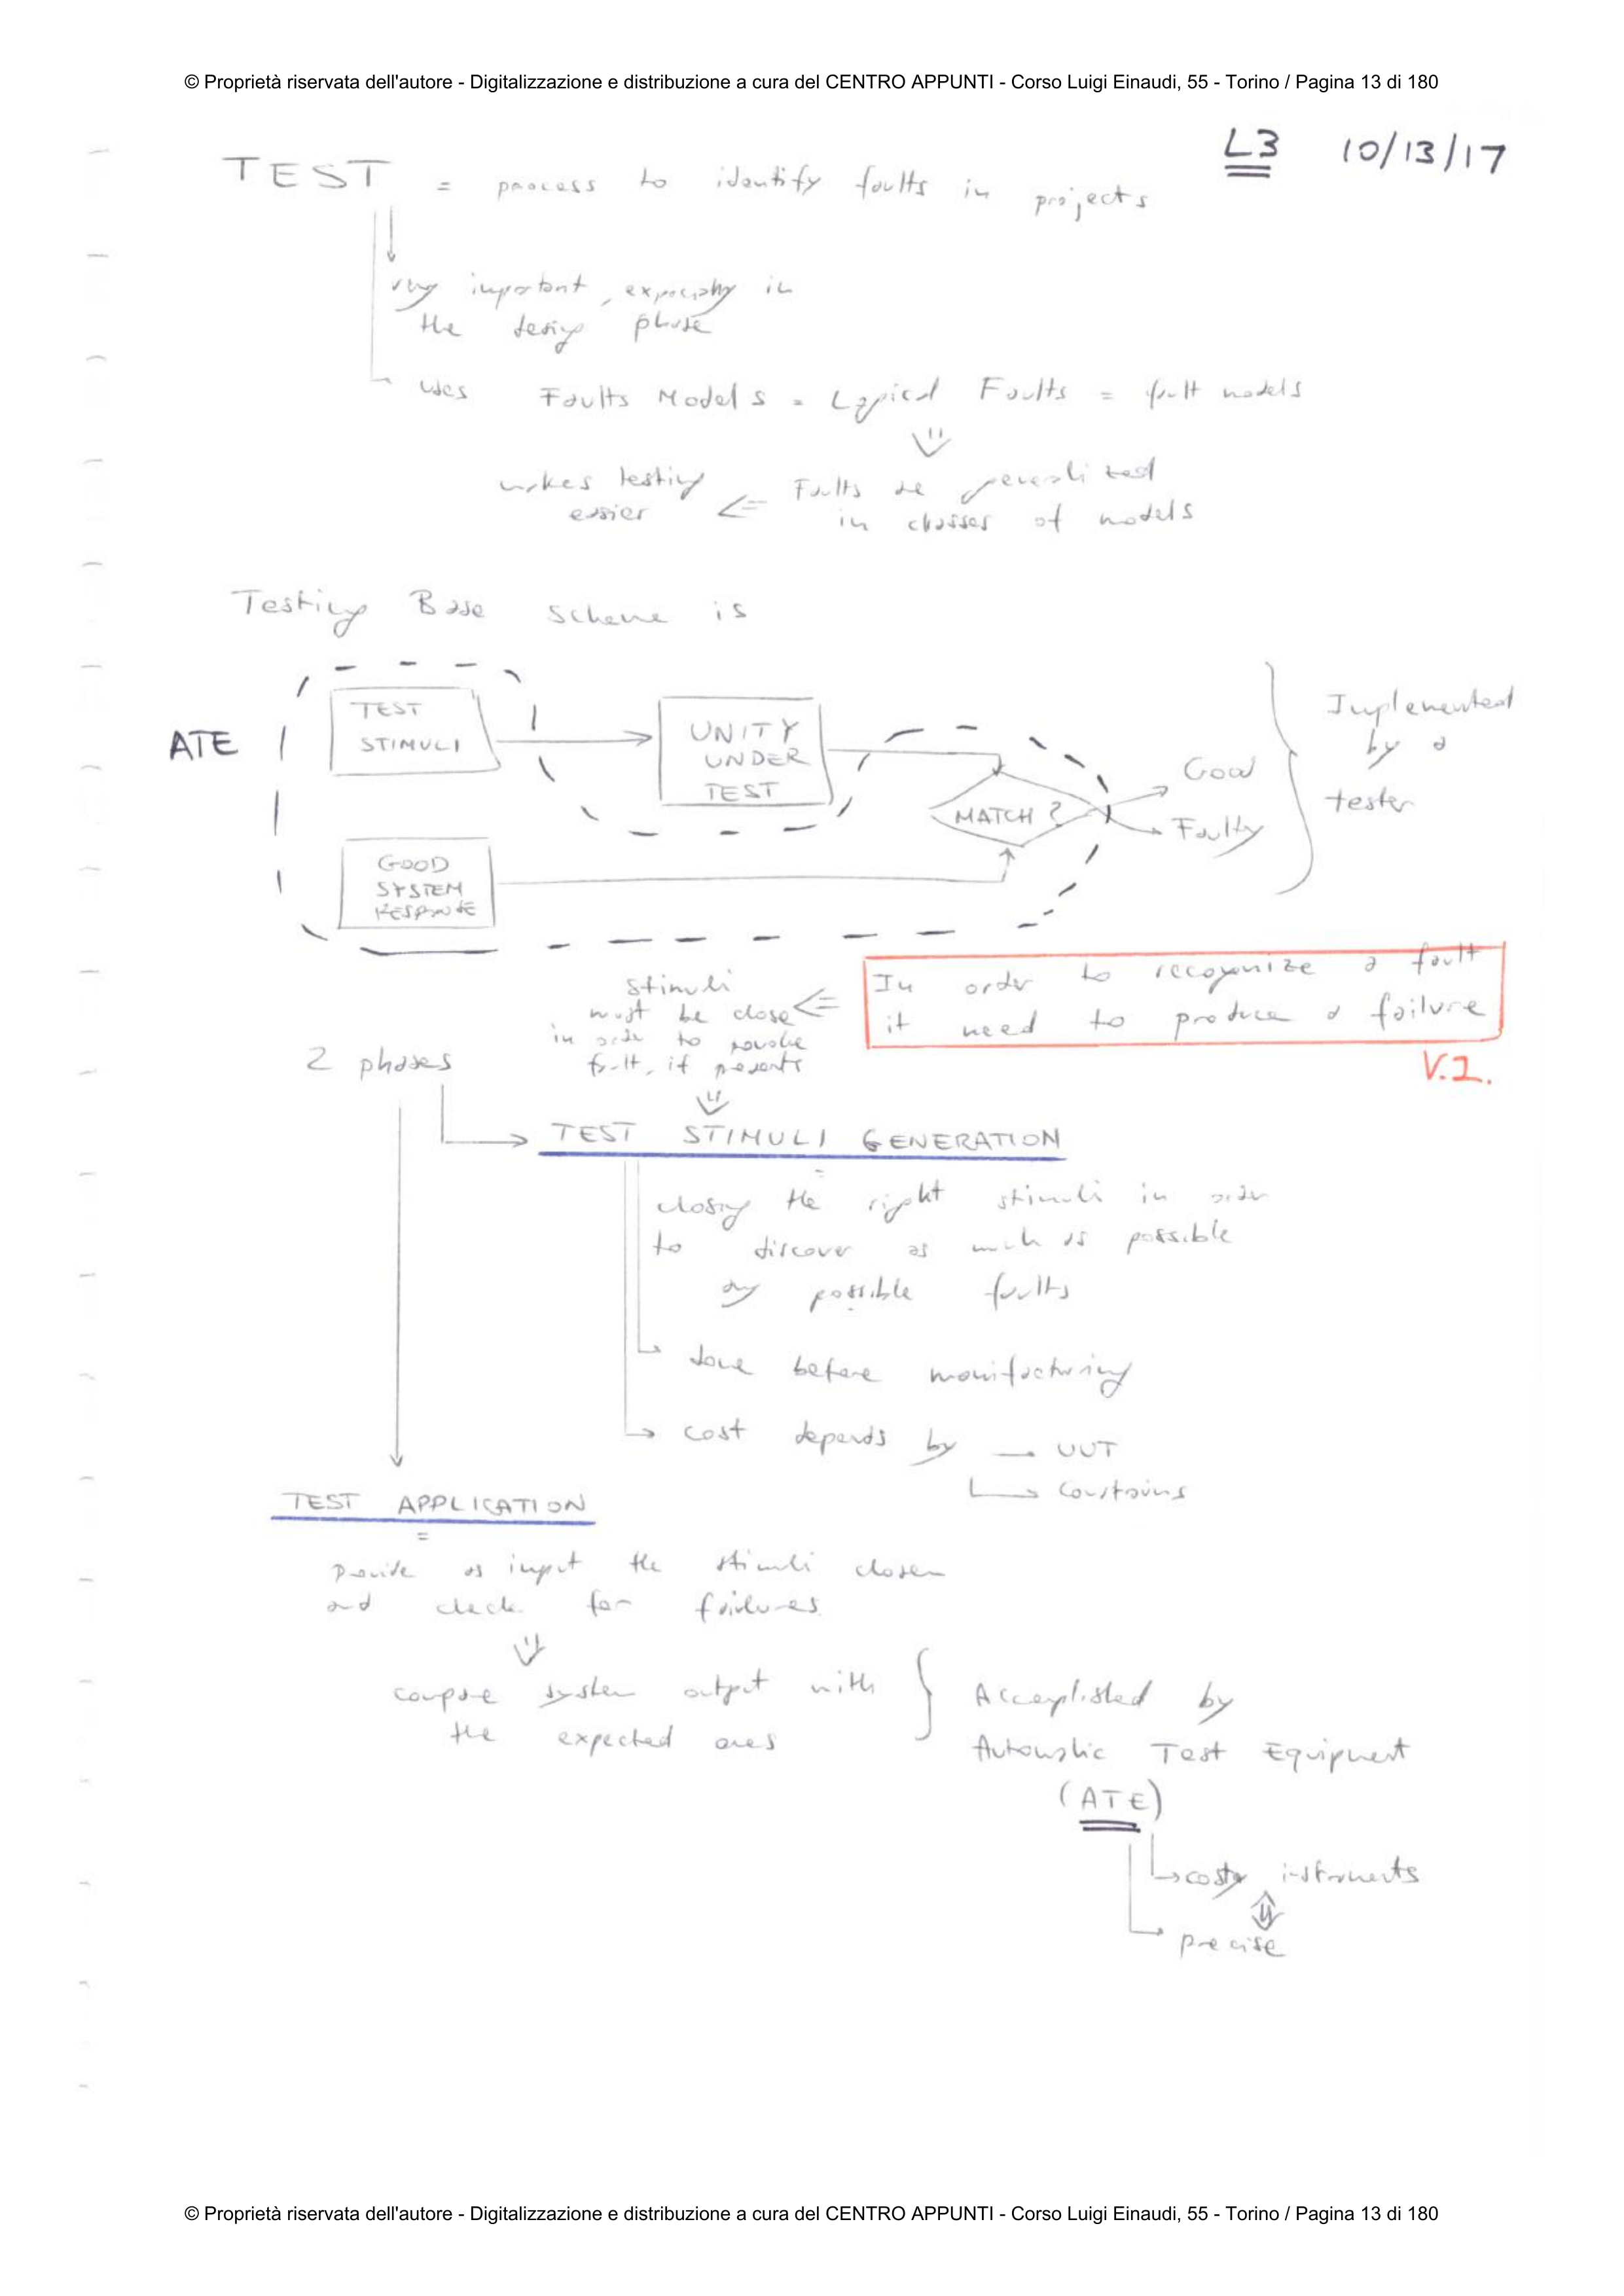 © Proprietà riservata dell'autore - Digitalizzazione e distribuzione a cura del CENTRO APPUNTI - Corso Luigi Einaudi, 55 - Torino / Pagina 13 di 180
L3 10/13/17
TEST = process to identify faults in projects
very important, expecially in
the design phase
uses Faults Models = Logical Faults = fault models
makes testing <= Faults are generalized
easier in classes of models
Testing Base scheme is
ATE
TEST
STIMULI
UNITY
UNDER
TEST
MATCH?
Good
Faulty
GOOD
SYSTEM
RESPONSE
Implemented
by a
tester
In order to recognize a fault
it need to produce a failure
V.I.
stimuli
must be close
in order to
fault, if presents
2 phases
TEST STIMULI GENERATION
=
closing the right stimuli in order
to discover as much as possible
any possible faults
done before manifacturing
cost depends by → UUT
→ constrains
TEST APPLICATION
=
Provide as input the stimuli closen
and check for failures
compare system output with
the expected ones
Accomplished by
Automatic Test Equipment
(ATE)
costy instruments
precise
© Proprietà riservata dell'autore - Digitalizzazione e distribuzione a cura del CENTRO APPUNTI - Corso Luigi Einaudi, 55 - Torino / Pagina 13 di 180